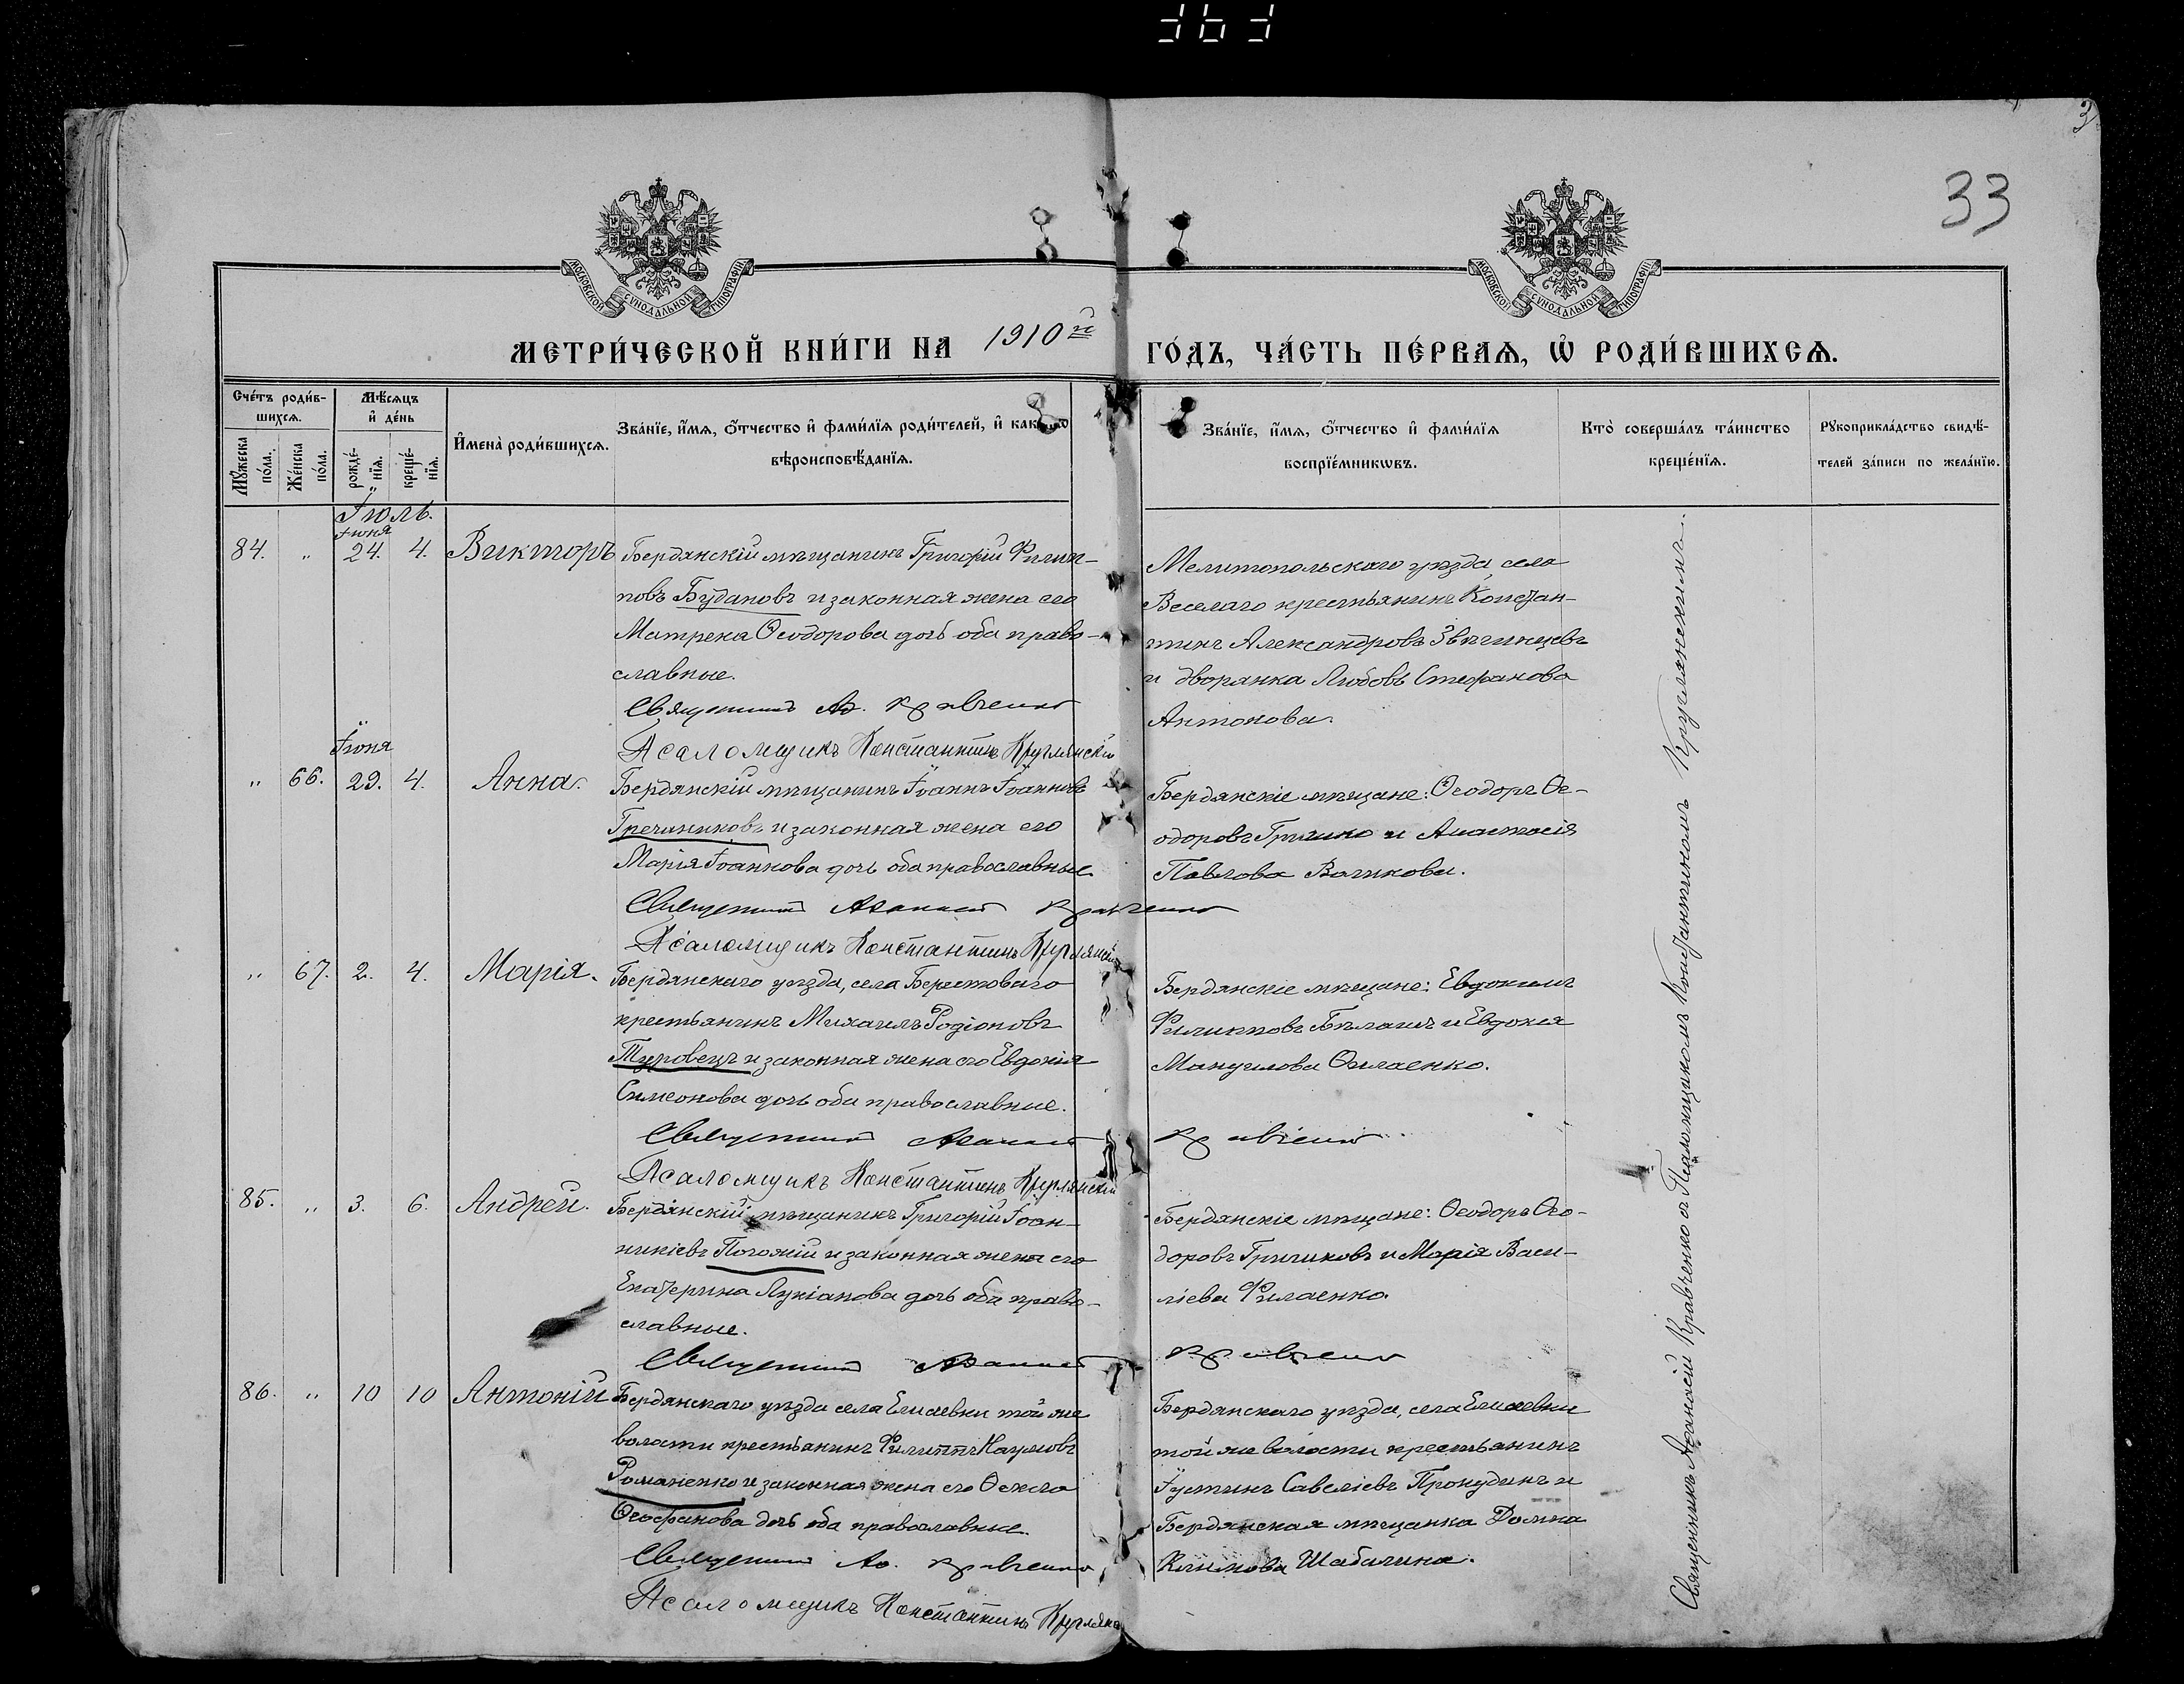 33
МОСКОВСКОЙ СУНОДАЛЬНОЙ ТИПОГРАФІИ
МОСКОВСКОЙ СУНОДАЛЬНОЙ ТИПОГРАФІИ
МЕТРИ́ЧЕСКОЙ КНИ́ГИ НА 1910й ГО́ДЪ, ЧА́СТЬ ПЕ́РВАѦ, Ѡ҆ РОДИ́ВШИХСѦ.
Сче́тъ роди́в-
шихсѧ.
Мꙋ́жеска по́ла.
Же́нска по́ла.
Мѣ́сяцъ
и҆ де́нь
рожде́-
нїѧ.
креще́-
нїѧ.
И҆мена̀ роди́вшихсѧ.
Зва́нїе, и҆́мѧ, ѻ҆́тчество и҆ фами́лїѧ роди́телей, и҆ како́гѡ
вѣроисповѣ́данїѧ.
Зва́нїе, и҆́мѧ, ѻ҆́тчество и҆ фами́лїѧ
воспрїе́мникѡвъ.
Кто̀ соверша́лъ та́инство
креще́нїѧ.
Рꙋкоприкла́дство свидѣ́-
телей за́писи по жела́нїю.
Іюль.
Іюня
84. " 24. 4. Викторъ
Бердянскій мѣщанинъ Григорій Филип-
повъ Будановъ и законная жена его
Матрена Ѳеодорова дочь оба право-
славные.
Священникъ Аѳ. Кравченко
Псаломщикъ Константинъ Круглянскій
Мелитопольскаго уѣзда, села
Веселаго крестьянинъ Констан-
тинъ Александровъ Звѣгинцевъ
и дворянка Любовь Стефанова
Антонова.
Іюня
" 66. 29. 4. Анна.
Бердянскій мѣщанинъ Іоаннъ Іоанновъ
Гречишниковъ и законная жена его
Марія Іоаннова дочь оба православные
Священникъ Аѳанасій Кравченко
Псаломщикъ Константинъ Круглянскій
Бердянскіе мѣщане: Ѳеодоръ Ѳе-
одоровъ и Анастасія
Павлова Воликова.
" 67. 2. 4. Марія.
Бердянскаго уѣзда, села Берестоваго
крестьянинъ Михаилъ Родіоновъ
Туровецъ и законная жена его Евдокія
Симеонова дочь оба православные.
Священникъ Аѳанасій Кравченко
Псаломщикъ Константинъ Круглянскій
Бердянскіе мѣщане: Евдокимъ
Филипповъ и Евдокія
Мануилова
85. " 3. 6. Андрей.
Бердянскій мѣщанинъ Григорій Іоан-
никіевъ Погожій и законная жена его
Екатерина Лукіанова дочь оба право-
славные.
Священникъ Аѳанасій Кравченко
Бердянскіе мѣщане: Ѳеодоръ Ѳео-
доровъ и Марія Васи-
ліева Филаенко.
86. " 10 10 Антоній
Бердянскаго уѣзда села Елисеевки той же
волости крестьянинъ Филиппъ Наумовъ
Романенко и законная жена его Ѳекла
Ѳеофанова дочь оба православные.
Священникъ Аѳ. Кравченко
Псаломщикъ Константинъ Круглянскій
Бердянскаго уѣзда, села Елисеевки
той же волости крестьянинъ
Іустинъ Савеліевъ Прокудинъ и
Бердянская мѣщанка Домна
Климова Шабалина.
Священникъ Аѳанасій Кравченко съ Псаломщикомъ Константиномъ Круглянскимъ.